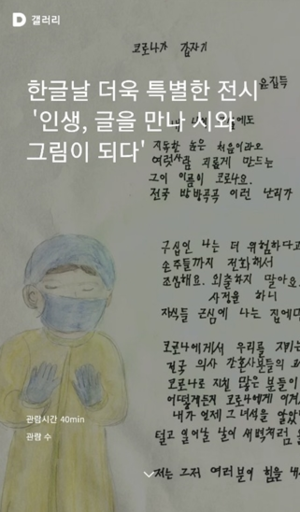 D 갤러리
코로나가 갑자기
윤집득
한글날 더욱 특별한 전시
'인생, 글을 만나 시와
그림이 되다'
에도
지독한 놈은 처음이라오
여럿사람 괴롭게 만드는
그이 이름이 코로나요.
전국 방방곡곡 이런 난리가
구십인 나는 더 위험하다고
손주들까지 전화해서
조심해요. 외출하지 말아요.
사정을 하니
자식들 근심에 나는 집에만
코로나에게서 우리를 지키는
전국 의사 간호사분들의
코로나로 지친 많은 분들이
어떻게든지 코로나에게 이겨
내가 언제 그녀석을 알았
털고 일어날 날이 새벽처럼
저는 그저 여러분이 힘을 내
관람시간 40min
관람 수